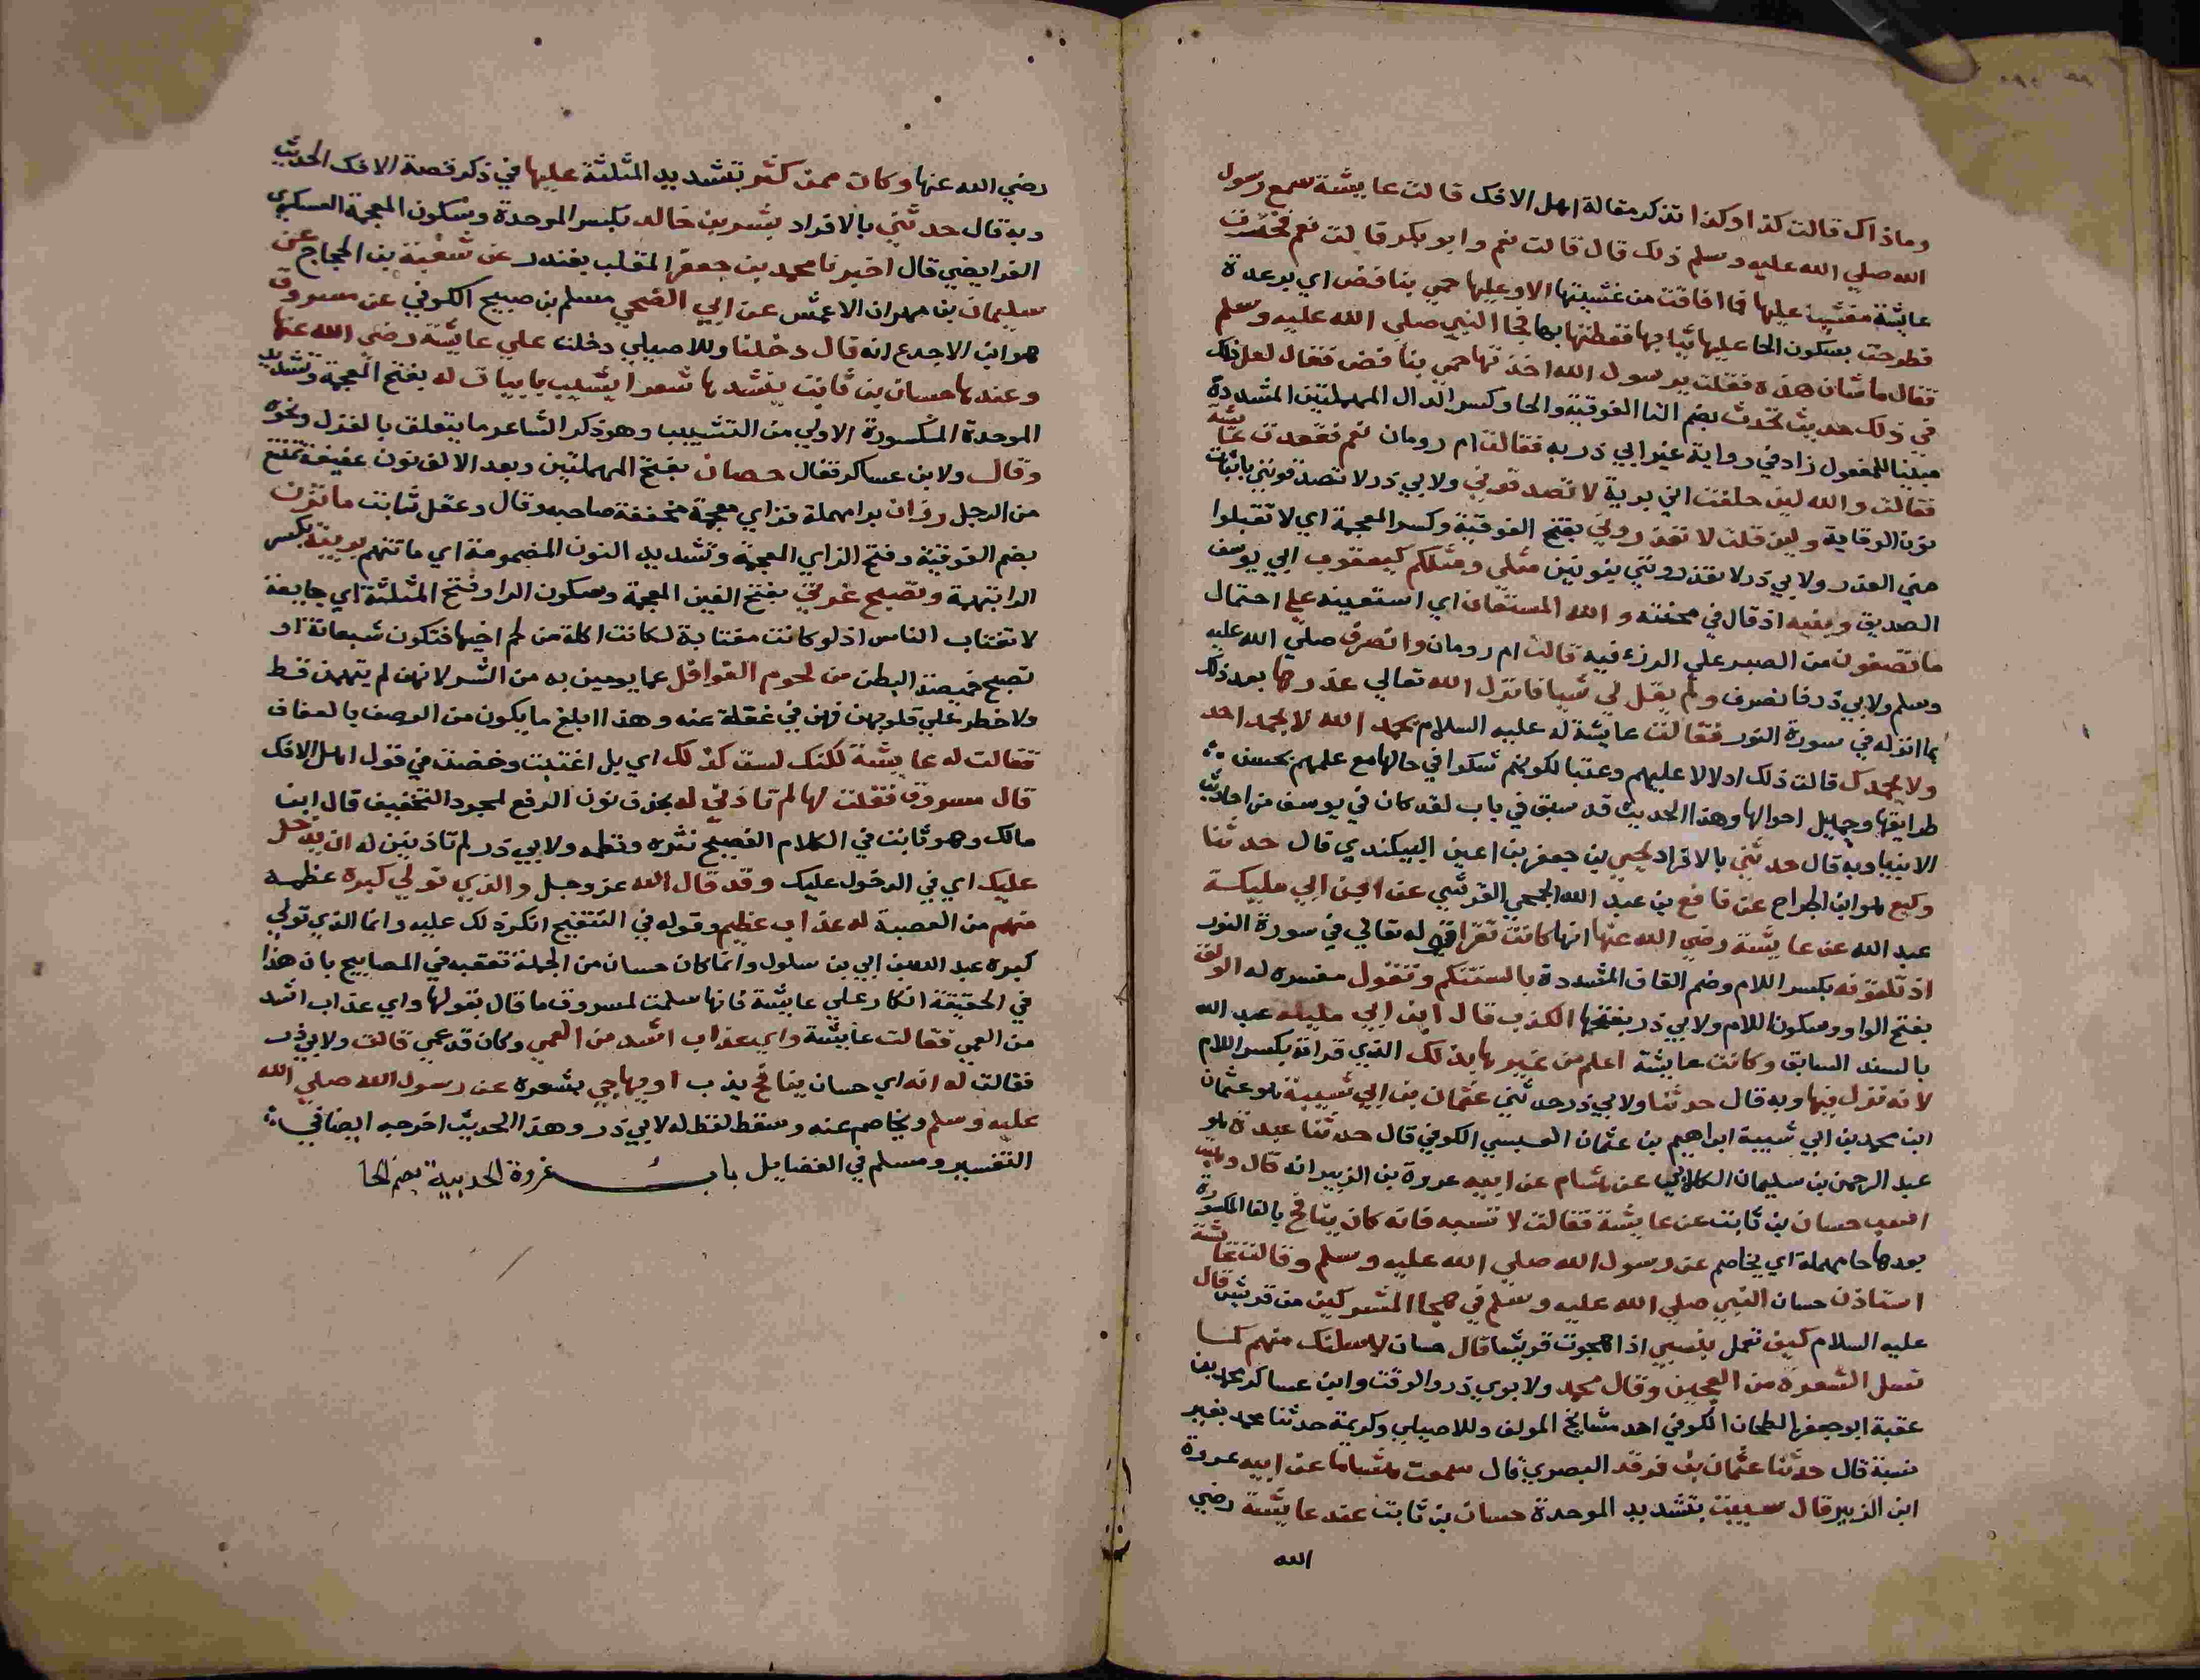 وماذاك قالت كذا وكذا تذكر مقالة اهل الافك قالت عايشة سمع رسول
الله صلي الله عليه وسلم ذلك قال قالت نعم وابو بكر قالت نعم فخرت
عايشة مغشيا عليها فما افاقت من غشيتها الا وعليها حمي بنافض اي برعدة
فطرحت بسكون الحا عليها ثيابها فغطتها بها فجا النبي صلي الله عليه وسلم
فقال ما شان هذه فقلت يرسول الله اخذتها حمي بنافض فقال لعل ذلك
في ذلك حديث تحدث بضم التا الفوقية والحا وكسر الدال المهملتين المشددة
مبنيا للمفعول زاد في رواية غير ابي ذر به فقالت ام رومان نعم فقعدت عايشة
فقالت والله لين حلفت اني برية لا تصدقوني ولابي ذر لا تصدقونني باثبات
نون الوقاية ولين قلت لا تعذروني بفتح الفوقية وكسر المعجمة اي لا تقبلوا
مني العذر ولابي ذر لا تعذرونني بنونين مثلي ومثلكم كيعقوب ابي يوسف
الصديق وبنيه اذ قال في محنته والله المستعان اي استعينه علي احتمال
ما تصفون من الصبر علي الرزء فيه قالت ام رومان وانصرف صلي الله عليه
وسلم ولابي ذر فانصرف ولم يقل لي شيا فانزل الله تعالي عذرها بعد ذلك
بما انزله في سورة النور فقالت عايشة له عليه السلام بحمد الله لا بحمد احد
ولا بحمدك قالت ذلك ادلالا عليهم وعتبا لكونهم شكوا في حالها مع علمهم بحسن
طرايقها وجميل احوالها وهذا الحديث قد سبق في باب لقد كان في يوسف من احاديث
الانبيا وبه قال حدثني بالافراد يحيي بن جعفر بن اعين البيكندي قال حدثنا
وكيع هو ابن الجراح عن نافع بن عبد الله الجمحي القرشي عن ابن ابي مليكة
عبد الله عن عايشة رضي الله عنها انها كانت تقرا قوله تعالي في سورة النور
اذ تلقونه بكسر اللام وضم القاف المشددة بالسنتكم وتقول مفسره له الولق
بفتح الواو وسكون اللام ولابي ذر بفتحها الكذب قال ابن ابي مليكه عبد الله
بالسند السابق وكانت عايشة اعلم من غيرها بذلك الذي قراته بكسر اللام
لانه نزل فيها وبه قال حدثنا ولابي ذر حدثني عثمان بن ابي شيبة هو عثمان
ابن محمد بن ابي شيبة ابراهيم بن عثمان العبسي الكوفي قال حدثنا عبدة هو
عبد الرحمن بن سليمان الكلابي عن هشام عن ابيه عروة بن الزبير انه قال ذهبت
اسب حسان بن ثابت عن عايشة فقالت لا تسبه فانه كان ينافح بالفا المكسورة
بعدها حا مهملة اي يخاصم عن رسول الله صلي الله عليه وسلم وقالت عايشة
استاذن حسان النبي صلي الله عليه وسلم في هجا المشركين من قريش قال
عليه السلام كيف تعمل بنسبي اذا هجوت قريشا قال حسان لاسلنك منهم كما
تسل الشعرة من العجين وقال محمد ولابوي ذر والوقت وابن عساكر محمد بن
عقبة ابو جعفر الطحان الكوفي احد مشايخ المولف وللاصيلي وكريمة حدثنا محمد بغير
نسبة قال حدثنا عثمان بن فرقد البصري قال سمعت هشاما عن ابيه عروة
ابن الزبير قال سببت بتشديد الموحدة حسان بن ثابت عند عايشة رضي
الله
رضي الله عنها وكان ممن كثر بتشديد المثلثة عليها في ذكر قصة الافك الحديث
وبه قال حدثني بالافراد بشر بن خالد بكسر الموحدة وسكون المعجمة العسكري
الفرايضي قال اخبرنا محمد بن جعفر الملقب بغندر عن شعبة بن الحجاج عن
سليمان بن مهران الاعمش عن ابي الضحي مسلم بن صبيح الكوفي عن مسروق
هو ابن الاجدع انه قال دخلنا وللاصيلي دخلت علي عايشة رضي الله عنها
وعندها حسان بن ثابت ينشدها شعرا يشبب بابيات له بفتح المعجمة وتشديد
الموحدة المكسورة الاولي من التشبيب وهو ذكر الشاعر ما يتعلق بالغزل ونحوه
وقال ولابن عساكر فقال حصان بفتح المهملتين وبعد الالف نون عفيفة تمتنع
من الرجل رزان برا مهملة فزاي معجمة مخففة صاحبه وقال وعقل ثابت ما تزن
بضم الفوقية وفتح الزاي المعجمة وتشديد النون المضمومة اي ما تتهم بريبة بكسر
الرا بتهمة وتصبح غرثي بفتح الغين المعجمة وسكون الرا وفتح المثلثة اي جايعة
لا تغتاب الناس اذ لو كانت مغتابة لكانت اكلة من لحم اخيها فتكون شبعانة او
تصبح خميصة البطن من لحوم الغوافل عما يرمين به من الشر لانهن لم يتهمن قط
ولا خطر علي قلوبهن فهن في غفلة عنه وهذا ابلغ ما يكون من الوصف بالعفاف
فقالت له عايشة لكنك لست كذلك اي بل اغتبت وخضت في قول اهل الافك
قال مسروق فقلت لها لم تاذني له بحذف نون الرفع لمجرد التخفيف قال ابن
مالك وهو ثابت في الكلام الفصيح نثره ونظمه ولابي ذر لم تاذنين له ان يدخل
عليك اي في الدخول عليك وقد قال الله عز وجل والذي تولي كبره عظمه
منهم من العصبة له عذاب عظيم وقوله في التنقيح انكر ذلك عليه وانما الذي تولي
كبره عبد الله بن ابي بن سلول وانما كان حسان من الجملة تعقبه في المصابيح بان هذا
في الحقيقة انكار علي عايشة فانها سلمت لمسروق ما قال بقولها واي عذاب اشد
من العمي فقالت عايشة واي عذاب اشد من العمي وكان قد عمي قالت ولابي ذر
فقالت له انه اي حسان ينافح يذب او يهاجي بشعره عن رسول الله صلي الله
عليه وسلم ويخاصم عنه وسقط لفظ له لابي ذر وهذا الحديث اخرجه ايضا في
التفسير ومسلم في الفضايل باب غزوة الحديبية بضم الحا